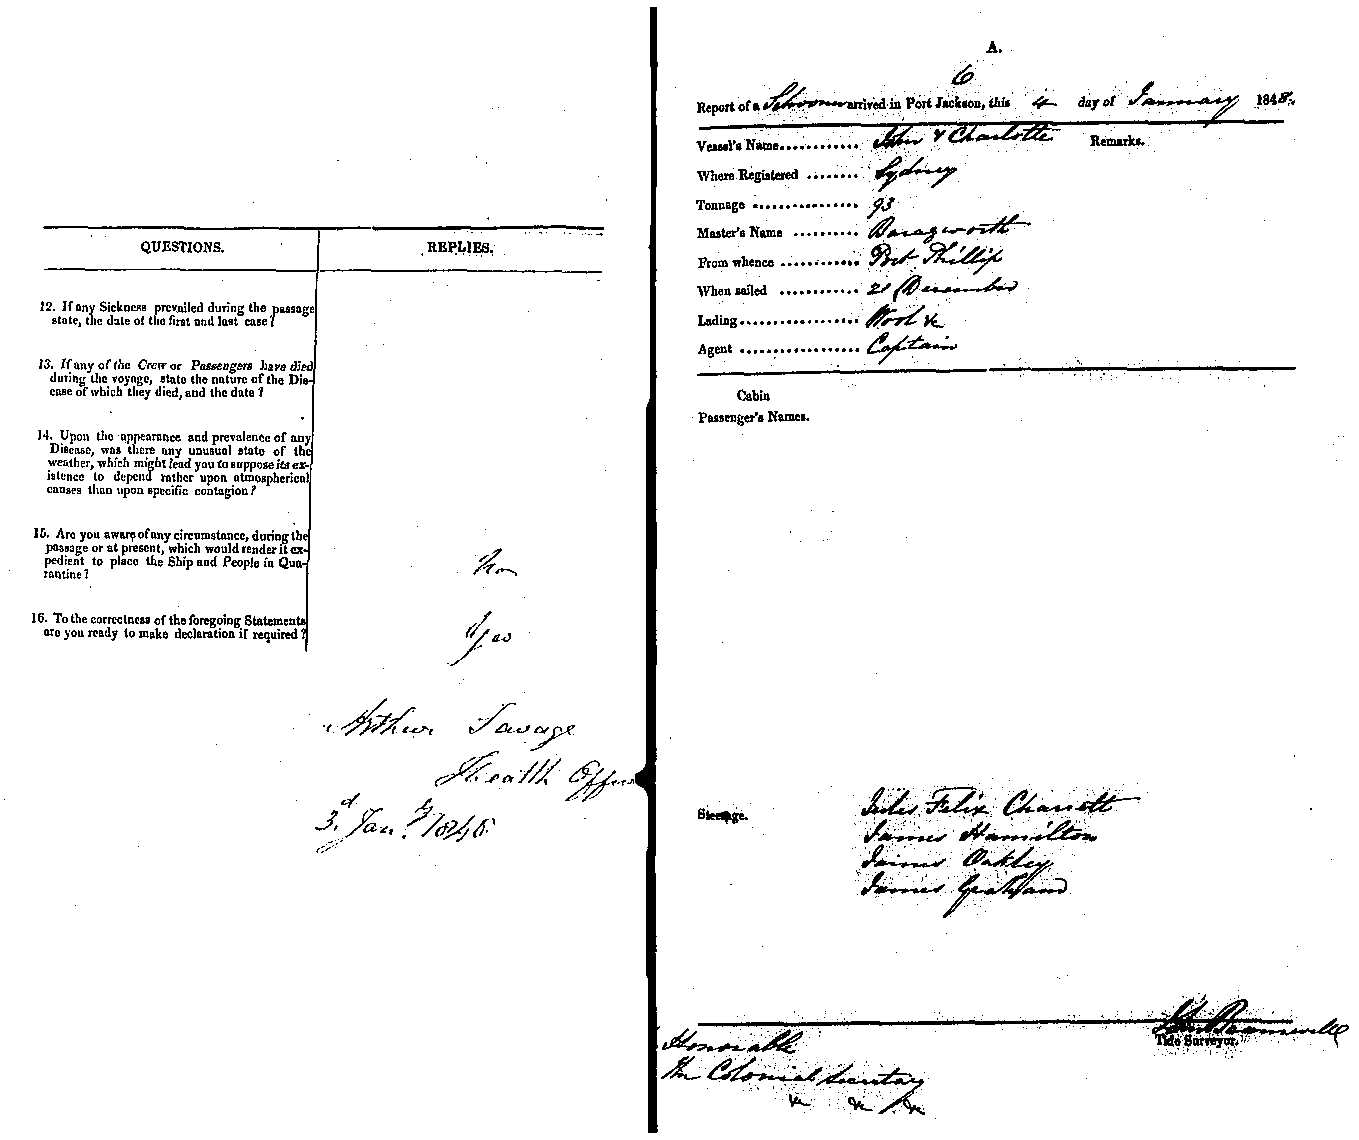 QUESTIONS. REPLIES.
12. If any Sickness prevailed during the passage
state, the date of the first and last case?
13. If any of the Crew or Passengers have died
during the voyage, state the nature of the Dis-
ease of which they died, and the date?
14. Upon the appearance and prevalence of any
Disease, was there any unusual state of the
weather, which might lead you to suppose its ex-
istence to depend rather upon atmospherical
causes than upon specific contagion?
15. Are you aware of any circumstance, during the
passage or at present, which would render it ex-
pedient to place the Ship and People in Qua-
rantine?
No
16. To the correctness of the foregoing Statements
are you ready to make declaration if required?
Yes
Arthur Savage
Health Officer
3d. Jany. 1848.
A.
6
Report of a Schooner arrived in Port Jackson, this 4 day of January 1848.
Vessel's Name............ John & Charlotte Remarks.
Where Registered ........ Sydney
Tonnage ................ 93
Master's Name .......... Baragworth
From whence ............ Port Phillip
When sailed ............ 21 December
Lading.................. Wool &c
Agent .................. Captain
Cabin
Passenger's Names.
Steerage. Jules Felix
James Hamilton
James Oakley
James Graham
Tide Surveyor.
Honorable
The Colonial Secretary
&c &c &c